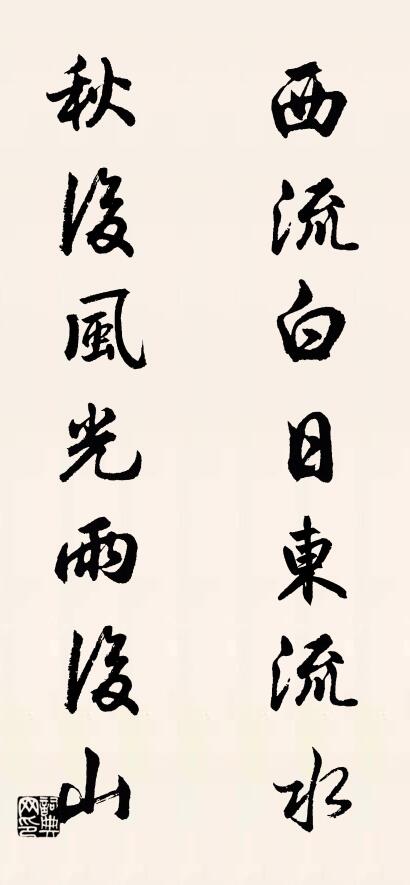 西流白日東流水
秋後風光雨後山
詞典網印